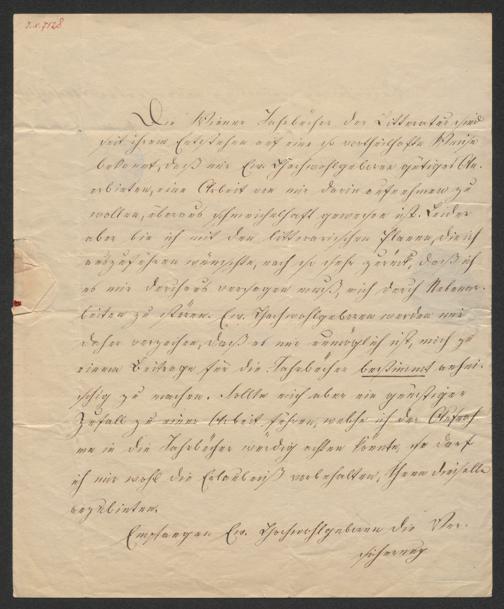 J. N. 7128
Die Wiener Jahrbücher der Litteratur sind
seit ihrem Entstehen auf eine so vortheilhafte Weise
bekannt, daß mir Ew. Hochwohlgeboren gütiges An-
erbieten, eine Arbeit von mir darin aufnehmen zu
wollen, überaus schmeichelhaft gewesen ist. Leider
aber bin ich mit den litterarischen Planen, die ich
auszuführen wünschte, noch so sehr zurück, daß ich
es mir durchaus versagen muß, mich durch Nebenar-
beiten zu stören. Ew. Hochwohlgeboren werden mir
daher verzeihen, daß es mir unmöglich ist, mich zu
einem Beitrage für die Jahrbücher bestimmt anhei-
schig zu machen. Sollte mich aber ein günstiger
Zufall zu einer Arbeit führen, welche ich der Aufnah-
me in die Jahrbücher würdig achten könnte, so darf
ich mir wohl die Erlaubniß vorbehalten, Ihnen dieselbe
anzubieten.
Empfangen Ew. Hochwohlgeboren die Ver-
sicherung